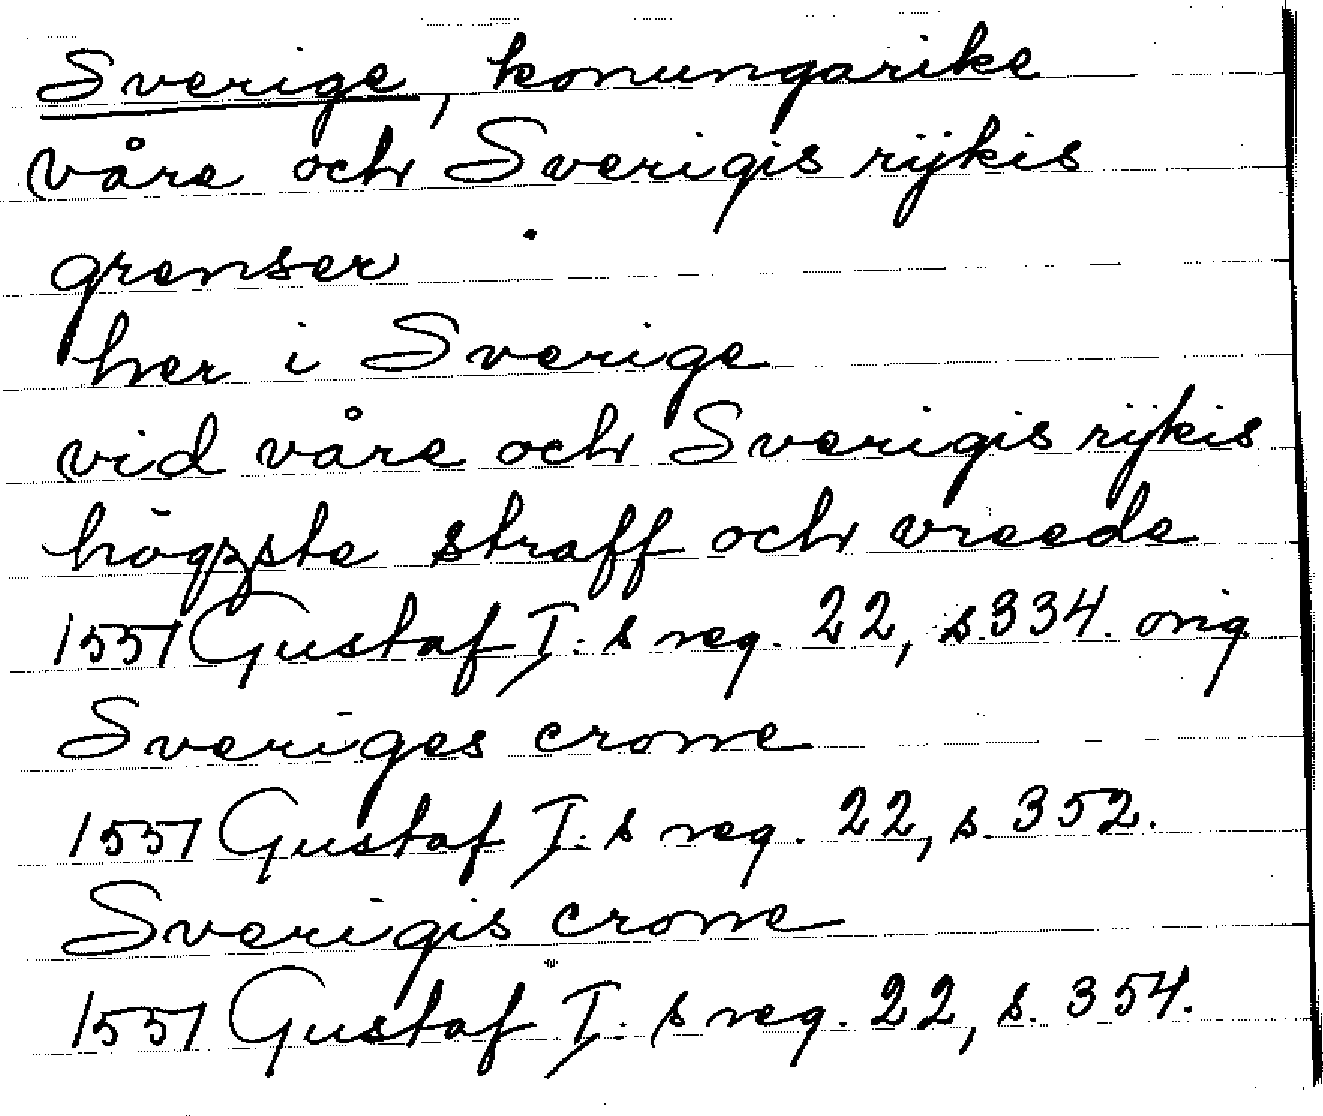 Sverige, konungarike
våre och Sverigis rijkis
grenser
her i Sverige
vid våre och Sverigis rijkis
högzste straff och vreede
1551 Gustaf I:s reg. 22, s. 334. orig
Sveriges crone
1551 Gustaf I:s reg. 22, s. 352.
Sverigis crone
1551 Gustaf I:s reg. 22, s. 354.